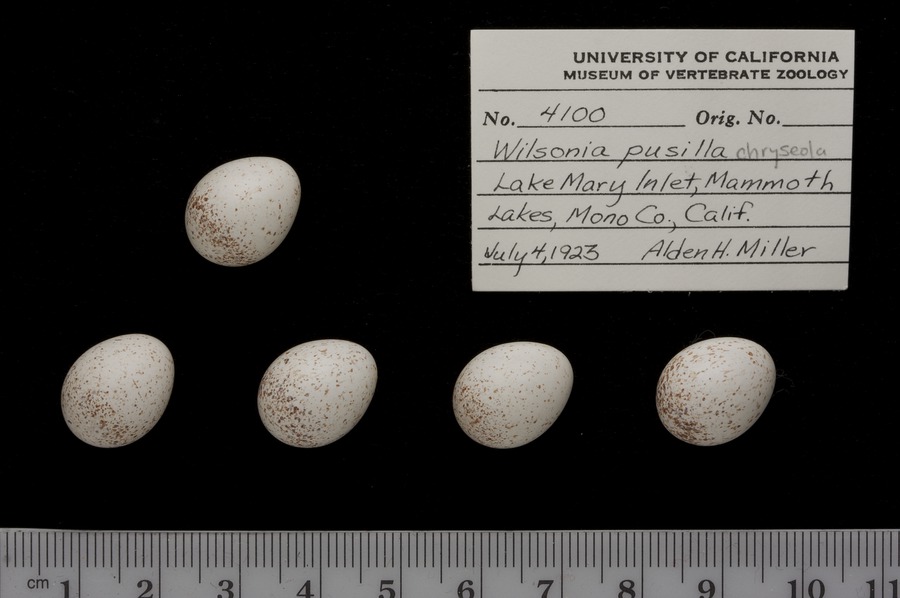 UNIVERSITY OF CALIFORNIA
MUSEUM OF VERTEBRATE ZOOLOGY
No. 4100 Orig. No.
Wilsonia pusilla chryseola
Lake Mary Inlet, Mammoth
Lakes, Mono Co., Calif.
July 4, 1923 Alden H. Miller
cm 1 2 3 4 5 6 7 8 9 10 11